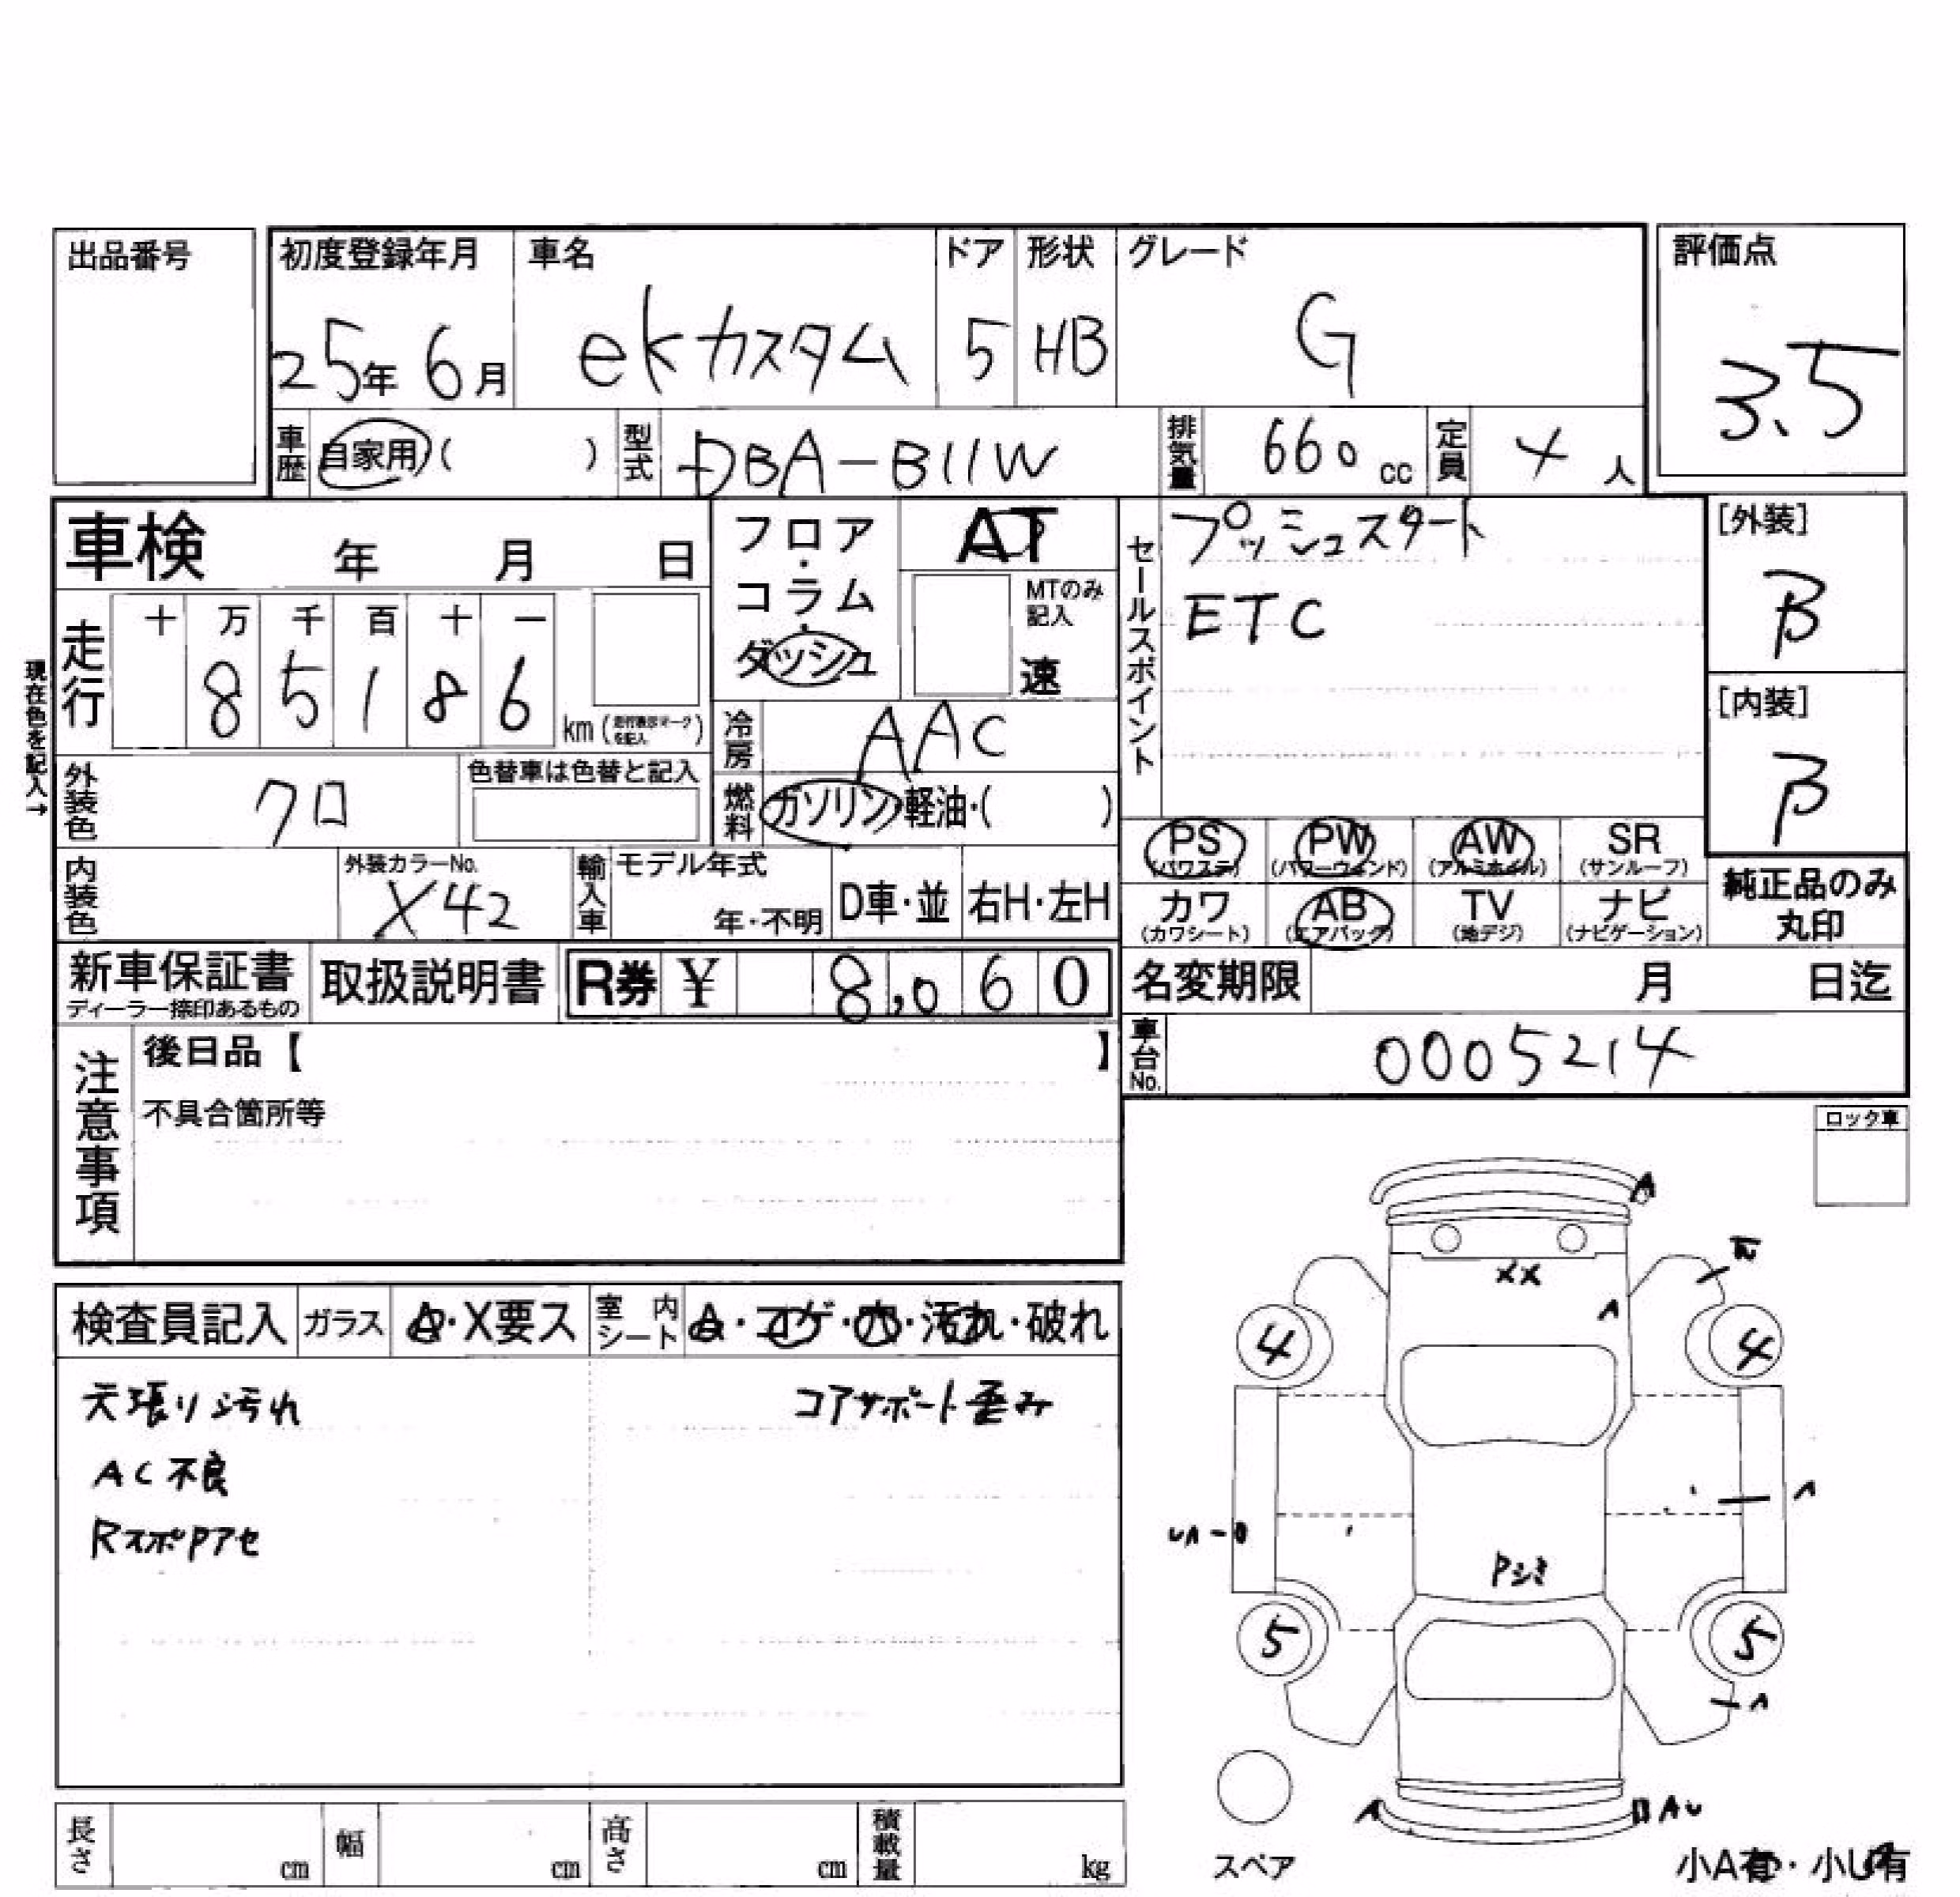 出品番号
初度登録年月 車名 ドア 形状 グレード 評価点
25年 6月 ekカスタム 5 HB G 3.5
車歴 自家用( ) 型式 DBA-B11W 排気量 660 cc 定員 4 人
車検 年 月 日
フロア・コラム・ダッシュ
AT
MTのみ記入
速
セールスポイント
プッシュスタート
ETC
[外装]
B
[内装]
B
現在色を記入→
走行 十 万 千 百 十 一
8 5 1 8 6 km(走行表示マークを記入)
冷房 AAC
外装色 クロ 色替車は色替と記入
燃料 ガソリン・軽油・( )
PS PW AW SR
(パワステ) (パワーウィンド) (アルミホイル) (サンルーフ)
カワ AB TV ナビ
(カワシート) (エアバック) (地デジ) (ナビゲーション)
純正品のみ
丸印
内装色 外装カラーNo. X42 輸入車 モデル年式 年・不明 D車・並 右H・左H
新車保証書 取扱説明書 R券 ¥ 8,060
ディーラー捺印あるもの
名変期限 月 日迄
車台No. 0005214
注意事項
後日品【 】
不具合箇所等
ロック車
検査員記入 ガラス A・X要ス 室内シート A・コゲ・穴・汚れ・破れ
天張り汚れ コアサポート歪み
AC不良
RスポPアセ
A
XX
A
4 4
A
UA-0
Pシミ
5 5
A
A AU
スペア
小A有・小U有
長さ cm 幅 cm 高さ cm 積載量 kg